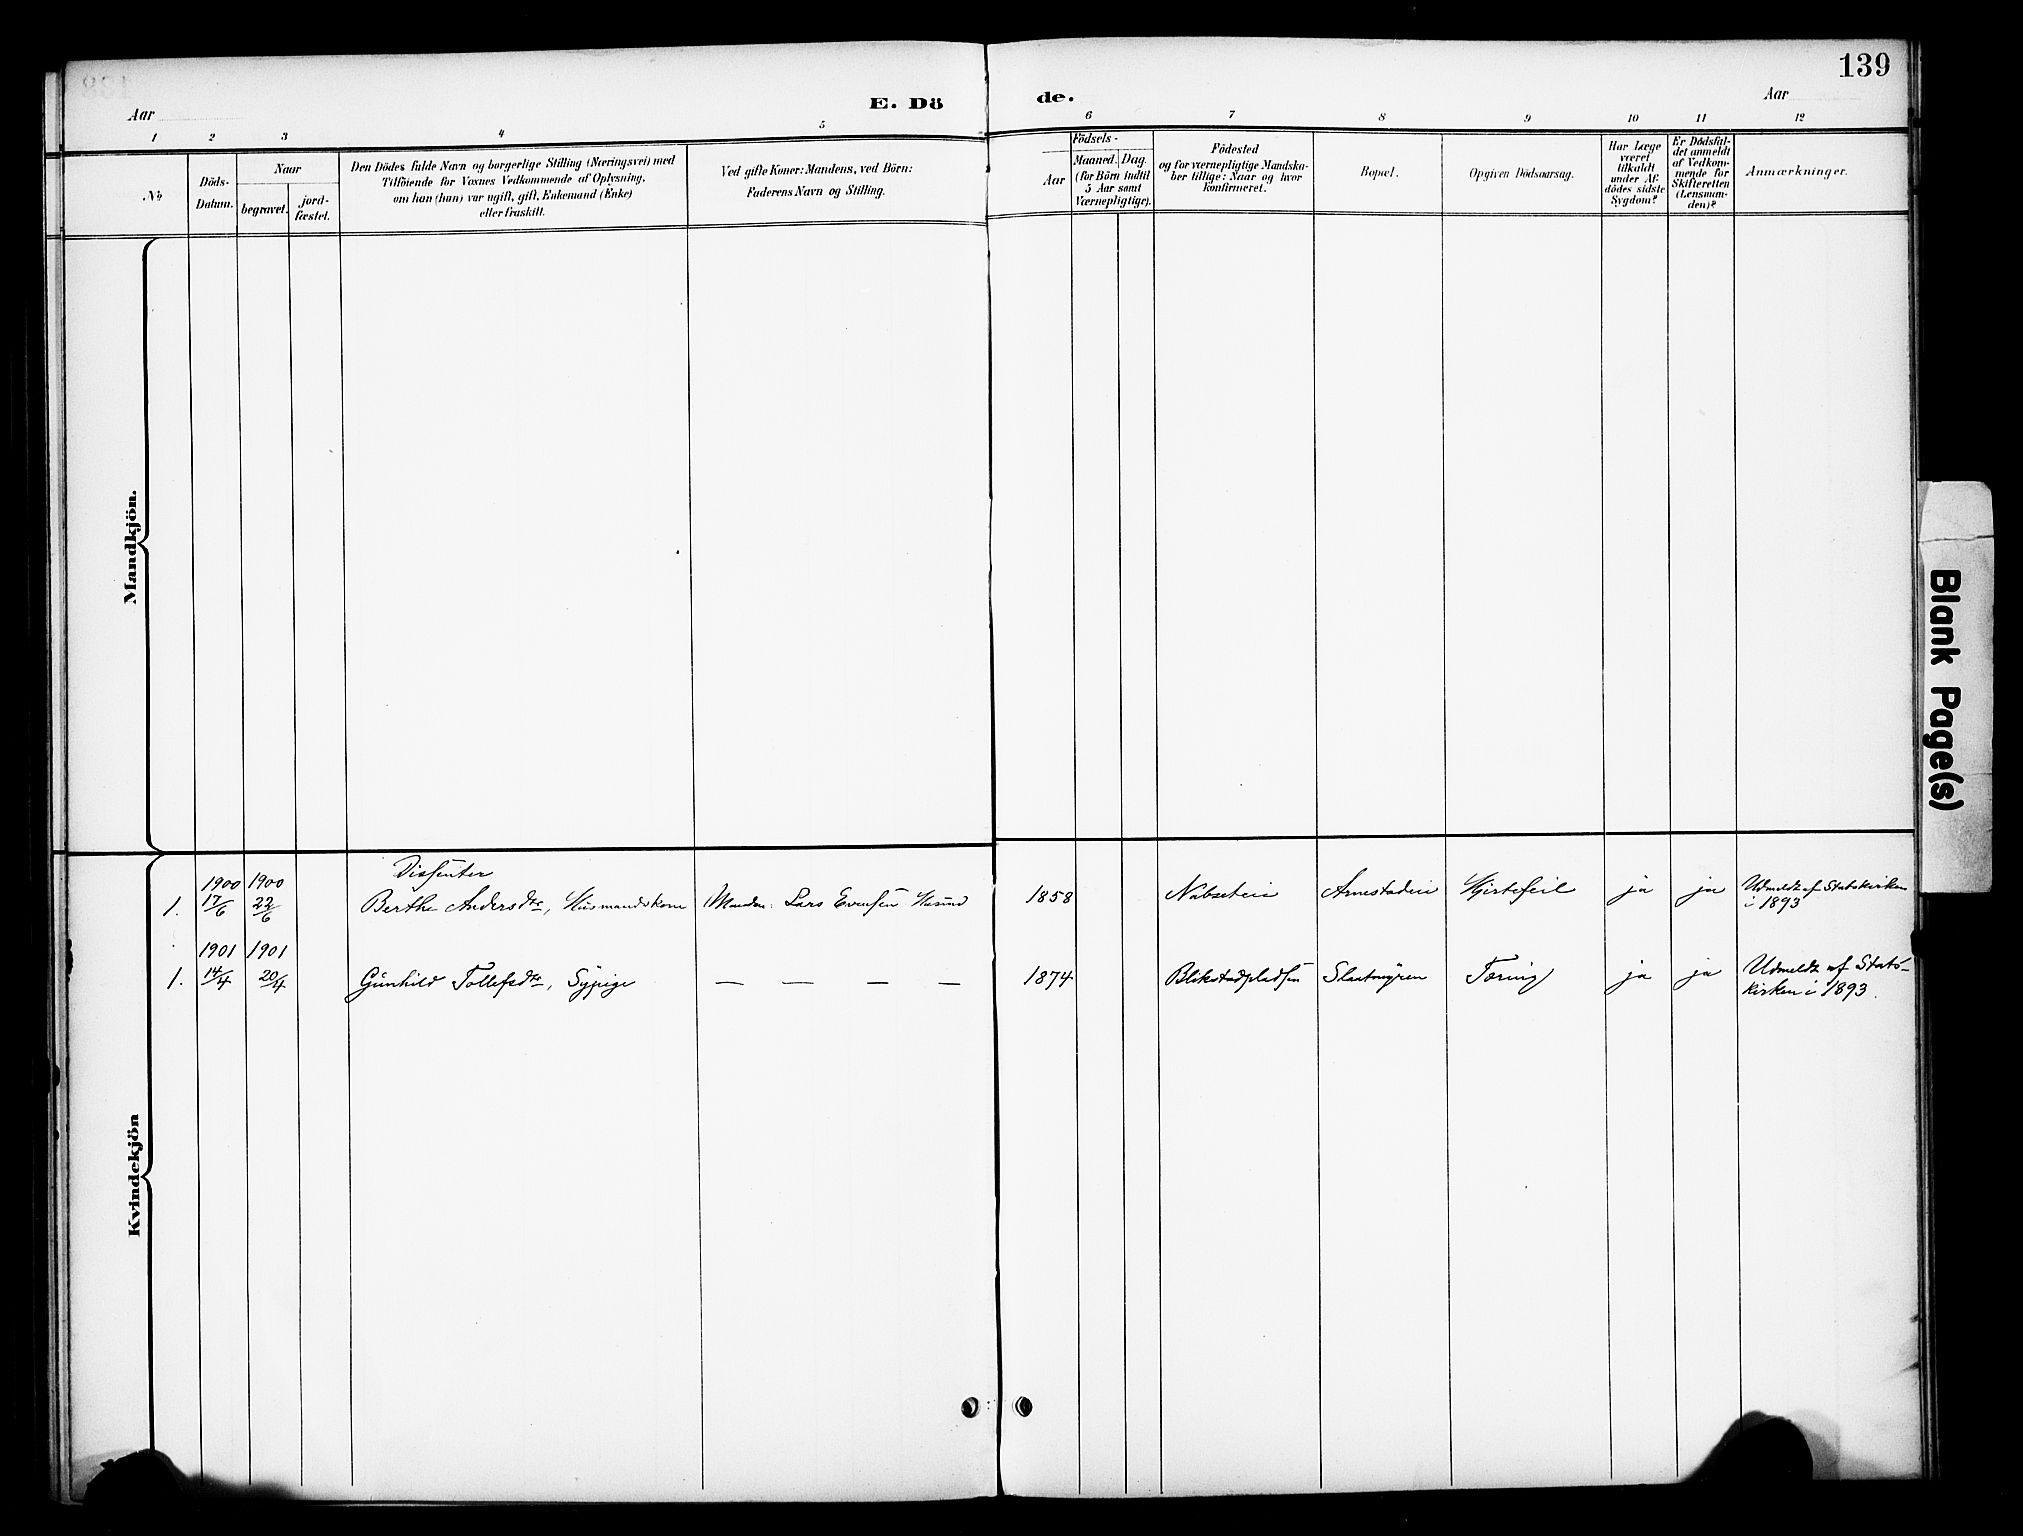 139
Aar
E. Dö
de.
Aar
1 2 3 4 5 6 7 8 9 10 11 12
No
Döds-
Datum.
Naar
begravet.
jord-
fæstet.
Den Dödes fulde Navn og borgerlige Stilling (Næringsvei) med
Tilföiende for Voxnes Vedkommende af Oplysning,
om han (hun) var ugift, gift, Enkemand (Enke)
eller fraskilt.
Ved gifte Koner: Mandens, ved Börn:
Faderens Navn og Stilling.
Födsels-
Aar
Maaned. Dag.
(for Börn indtil
5 Aar samt
Værnepligtige).
Födested
og for værnepligtige Mandska-
ber tillige: Naar og hvor
konfirmeret.
Bopæl.
Opgiven Dödsaarsag.
Har Læge
været
tilkaldt
under Af-
dödes sidste
Sygdom?
Er Dödsfal-
det anmeldt
af Vedkom-
mende for
Skifteretten
(Lensman-
den)?
Anmærkninger.
Mandkjön.
Kvindekjön
Dissenter
1900 1900
1. 17/6 22/6 Berthe Andersdtr, Husmandskone Manden: Lars Evensen Husund 1858 Nabseteie Arnestadeie Hjertefeil ja ja Udmeldt af Statskirken
i 1893
1901 1901
1. 14/4 20/4 Gunhild Tollefsdtr, Sypige — — — — 1874 Blikstadpladsen Slaatmyren Tæring ja ja Udmeldt af Stats-
kirken i 1893.
Blank Page(s)